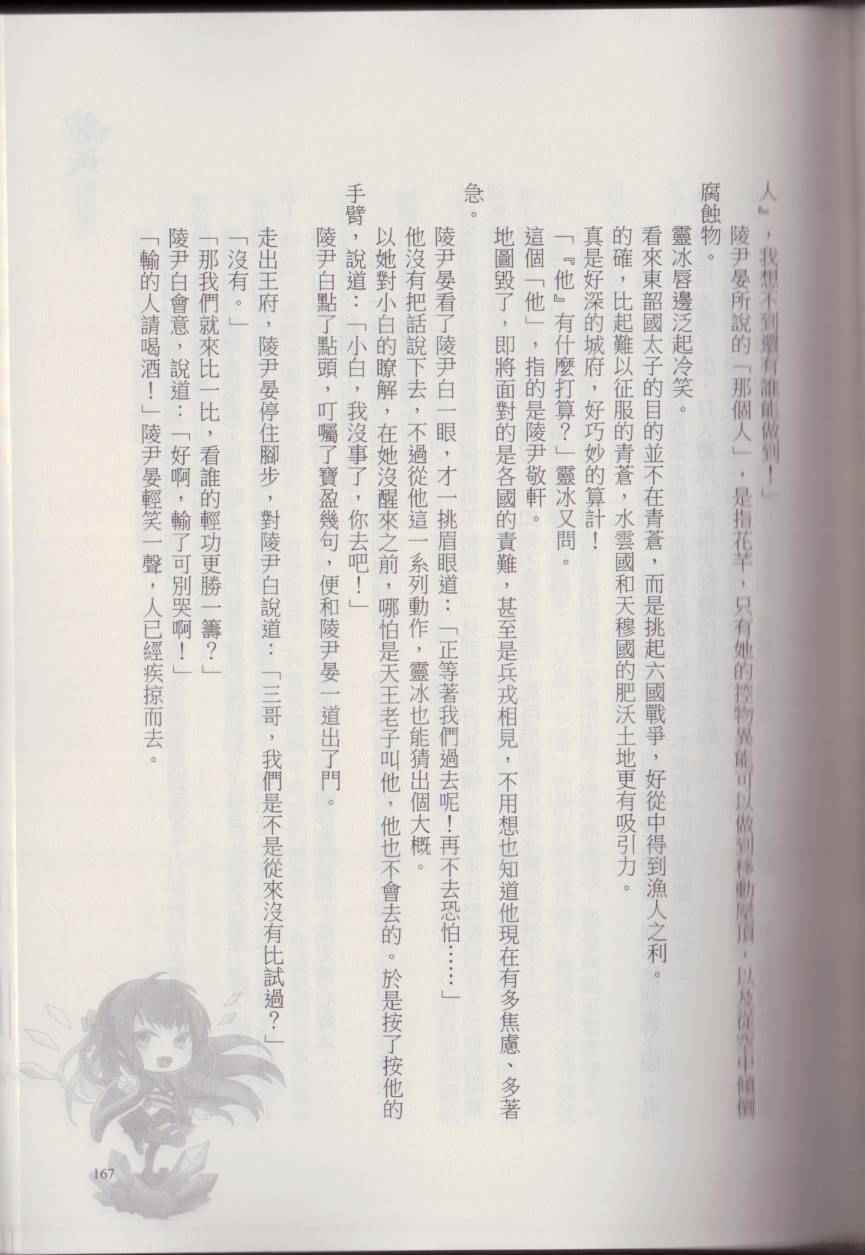 人』，我想不到還有誰能做到！」
陵尹晏所說的「那個人」，是指花芊，只有她的控物異能可以做到移動屋頂，以及從空中傾倒
腐蝕物。
靈冰唇邊泛起冷笑。
看來東韶國太子的目的並不在青蒼，而是挑起六國戰爭，好從中得到漁人之利。
的確，比起難以征服的青蒼，水雲國和天穆國的肥沃土地更有吸引力。
真是好深的城府，好巧妙的算計！
「『他』有什麼打算？」靈冰又問。
這個「他」，指的是陵尹敬軒。
地圖毀了，即將面對的是各國的責難，甚至是兵戎相見，不用想也知道他現在有多焦慮、多著
急。
陵尹晏看了陵尹白一眼，才一挑眉眼道：「正等著我們過去呢！再不去恐怕……」
他沒有把話說下去，不過從他這一系列動作，靈冰也能猜出個大概。
以她對小白的瞭解，在她沒醒來之前，哪怕是天王老子叫他，他也不會去的。於是按了按他的
手臂，說道：「小白，我沒事了，你去吧！」
陵尹白點了點頭，叮囑了寶盈幾句，便和陵尹晏一道出了門。
走出王府，陵尹晏停住腳步，對陵尹白說道：「三哥，我們是不是從來沒有比試過？」
「沒有。」
「那我們就來比一比，看誰的輕功更勝一籌？」
陵尹白會意，說道：「好啊，輸了可別哭啊！」
「輸的人請喝酒！」陵尹晏輕笑一聲，人已經疾掠而去。
167